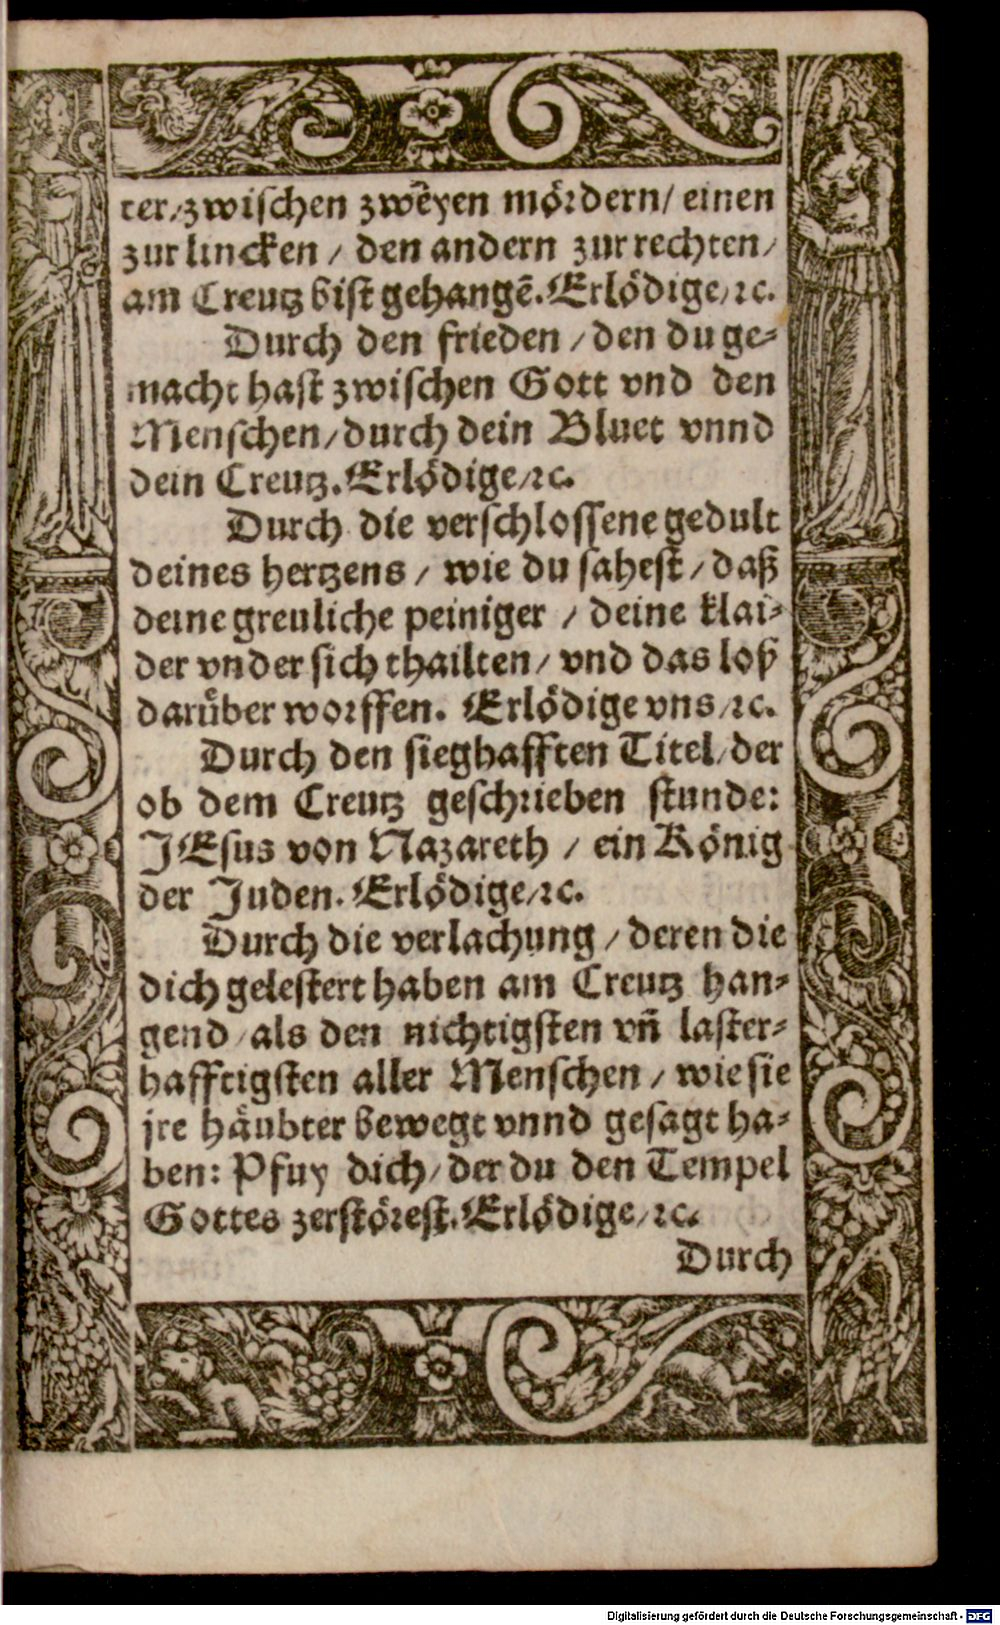 ter/ zwischen zwēyen mördern/ einen
zur lincken / den andern zur rechten/
am Creutz bist gehangē. Erlödige/ ꝛc.
Durch den frieden / den du ge⸗
macht hast zwischen Gott vnd den
Menschen/ durch dein Bluet vnnd
dein Creutz. Erlödige/ ꝛc.
Durch die verschlossene gedult
deines hertzens / wie du sahest / daß
deine greuliche peiniger / deine klai⸗
der vnder sich thailten/ vnd das loß
darüber worffen. Erlödige vns/ ꝛc.
Durch den sieghafften Titel/ der
ob dem Creutz geschrieben stunde:
JEsus von Nazareth / ein König
der Juden. Erlödige/ ꝛc.
Durch die verlachung / deren die
dich gelestert haben am Creutz han⸗
gend / als den nichtigsten vn̄ laster⸗
hafftigsten aller Menschen / wie sie
jre häubter bewegt vnnd gesagt ha⸗
ben: Pfuy dich/ der du den Tempel
Gottes zerstörest. Erlödige/ ꝛc.
Durch
Digitalisierung gefördert durch die Deutsche Forschungsgemeinschaft - DFG